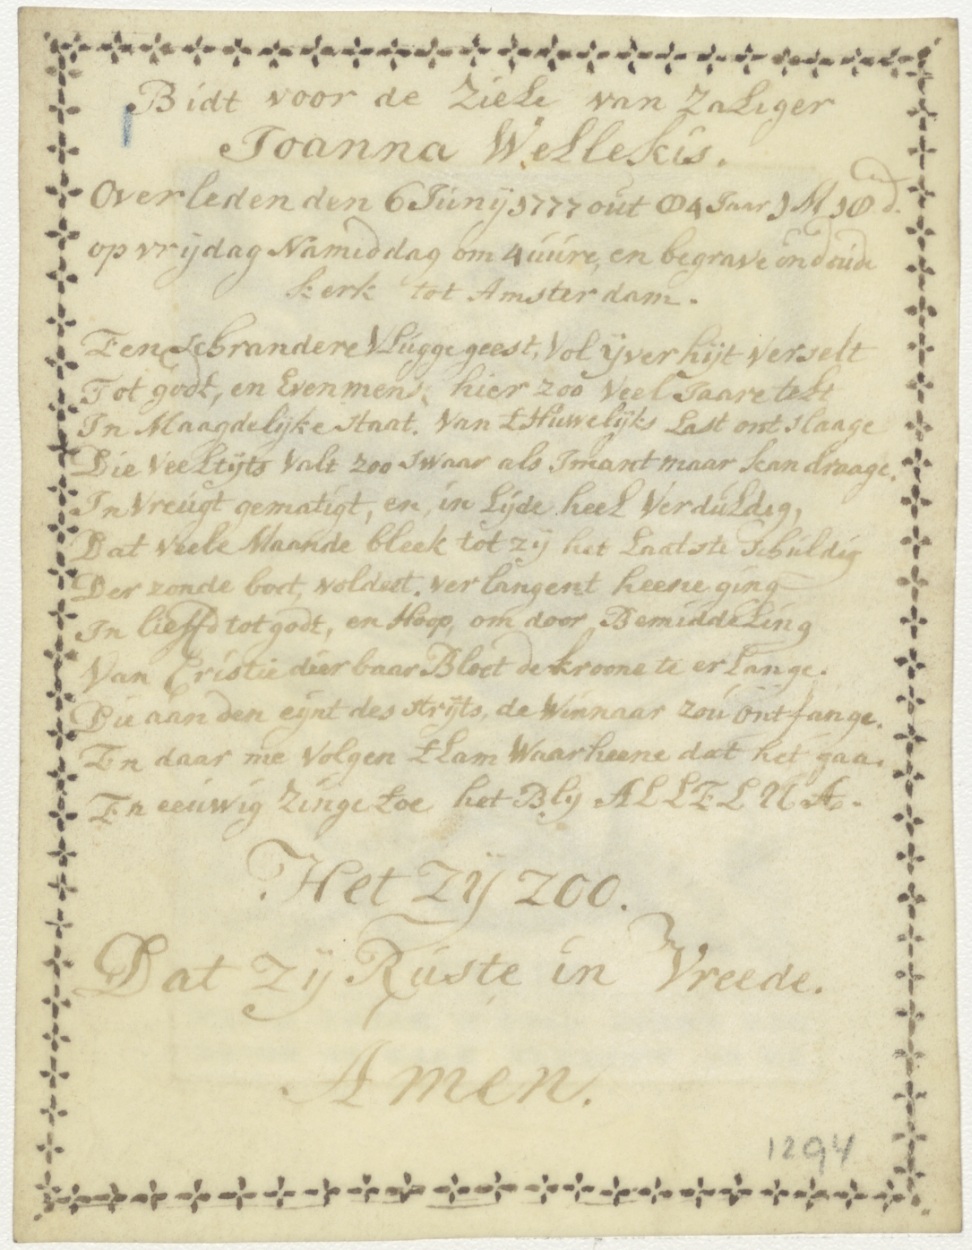 Bidt voor de ZieLe van ZaLiger
Joanna WeLLekis.
Overleden den 6 Juny 1777 out 84 Jaar 1 M 18 d.
op vrijdag Namiddag om 4 uure, en begrave in d oude
kerk tot Amsterdam.
Een schrandere Vlugge geest, Vol yver hijt verselt
Tot godt, en Evenmens hier zoo Veel Jaare telt
In Maagdelijke staat. Van t Huwelijks Last ontslaage
Die VeeLtijts Valt zoo swaar als Jmant maar kan draage.
In Vreugt gematigt, en in Lijde heeL VerduLdig,
Dat veele Maande bleek tot zy het Laatste schuldig
Der zonde boet, voldeet. verlangent heene ging
In lieffd tot godt, en Hoop, om door BemiddeLing
Van Cristie dierbaar Bloet de kroone te erLange.
Die aan den eynt des strijts, de Winnaar zou ontfange.
En daar me Volgen t Lam Waarheene dat het gaa.
En eeuwig Zinge toe het Bly ALLELUA.
Het Zy zoo.
Dat Zy Ruste in Vreede.
Amen.
1294